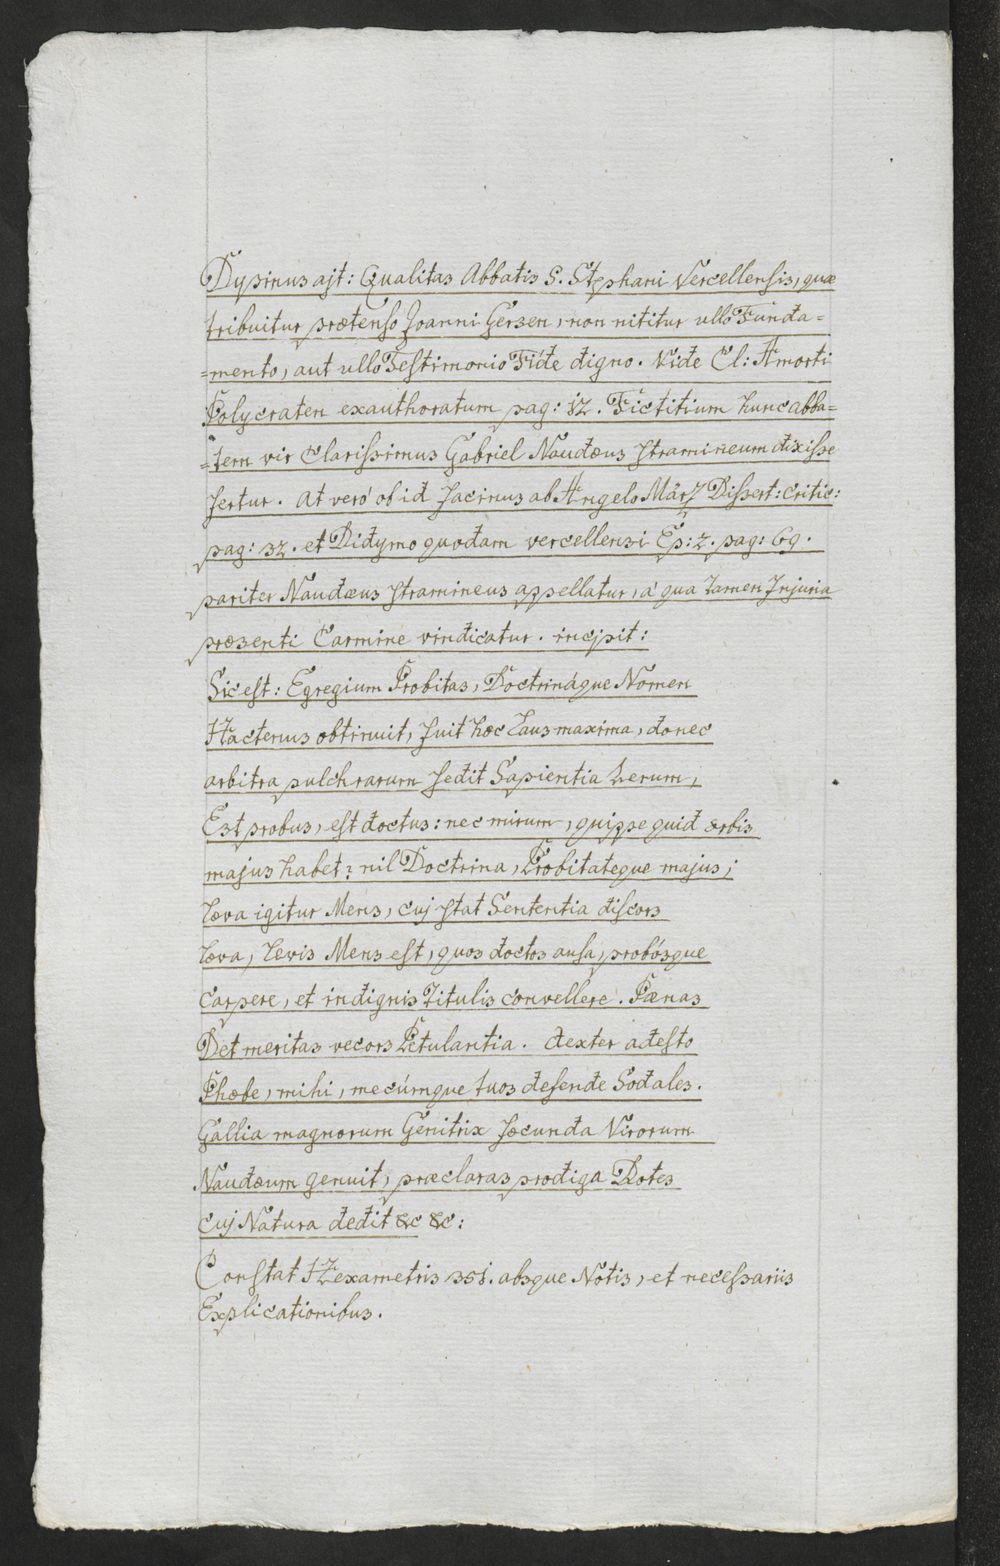 Dysinus ajt: Qualitas Abbatis S. Stephani Vercellensis, quæ
tribuitur prætenso Joanni Gersen, non nititur ullo Funda=
=mento, aut ullo Testimonio Fide digno. Vide Cl: Amorti
Polycraten exauthoratum pag: 12. Fictitium hunc abba=
=tem vir Clarissimus Gabriel Naudæus stramineum dixisse
fertur. At veró ob id facinus ab Angelo März Dissert: critic:
pag: 32. et Didymo quodam vercellensi Ep: 2. pag: 69.
pariter Naudæus stramineus appellatur, á qua tamen Injuria
præsenti Carmine vindicatur. incipit:
Sic est: Egregium Probitas, Doctrináque Nomen
Hactenus obtinuit, fuit hæc Laus maxima, donec
arbitra pulchrarum sedit Sapientia rerum,
Est probus, est doctus: nec mirum, quippe quid orbis
majus habet? nil Doctrina, Probitateque majus;
Læva igitur Mens, cuj stat Sententia discors
Læva, Levis Mens est, quos doctos ausa, probósque
Carpere, et indignis Titulis convellere. Pænas
Det meritas vecors Petulantia. dexter adesto
Phœbe, mihi, mecúmque tuos defende Sodales.
Gallia magnorum Genitrix fæcunda Virorum
Naudæum genuit, præclaras prodiga Dotes
cuj Natura dedit &c &c:
Constat Hexametris 351. absque Notis, et necessariis
Explicationibus.